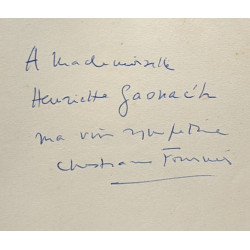 A Mademoiselle
Henriette Gaonac'h
ma vive sympathie
Christiane Fournier